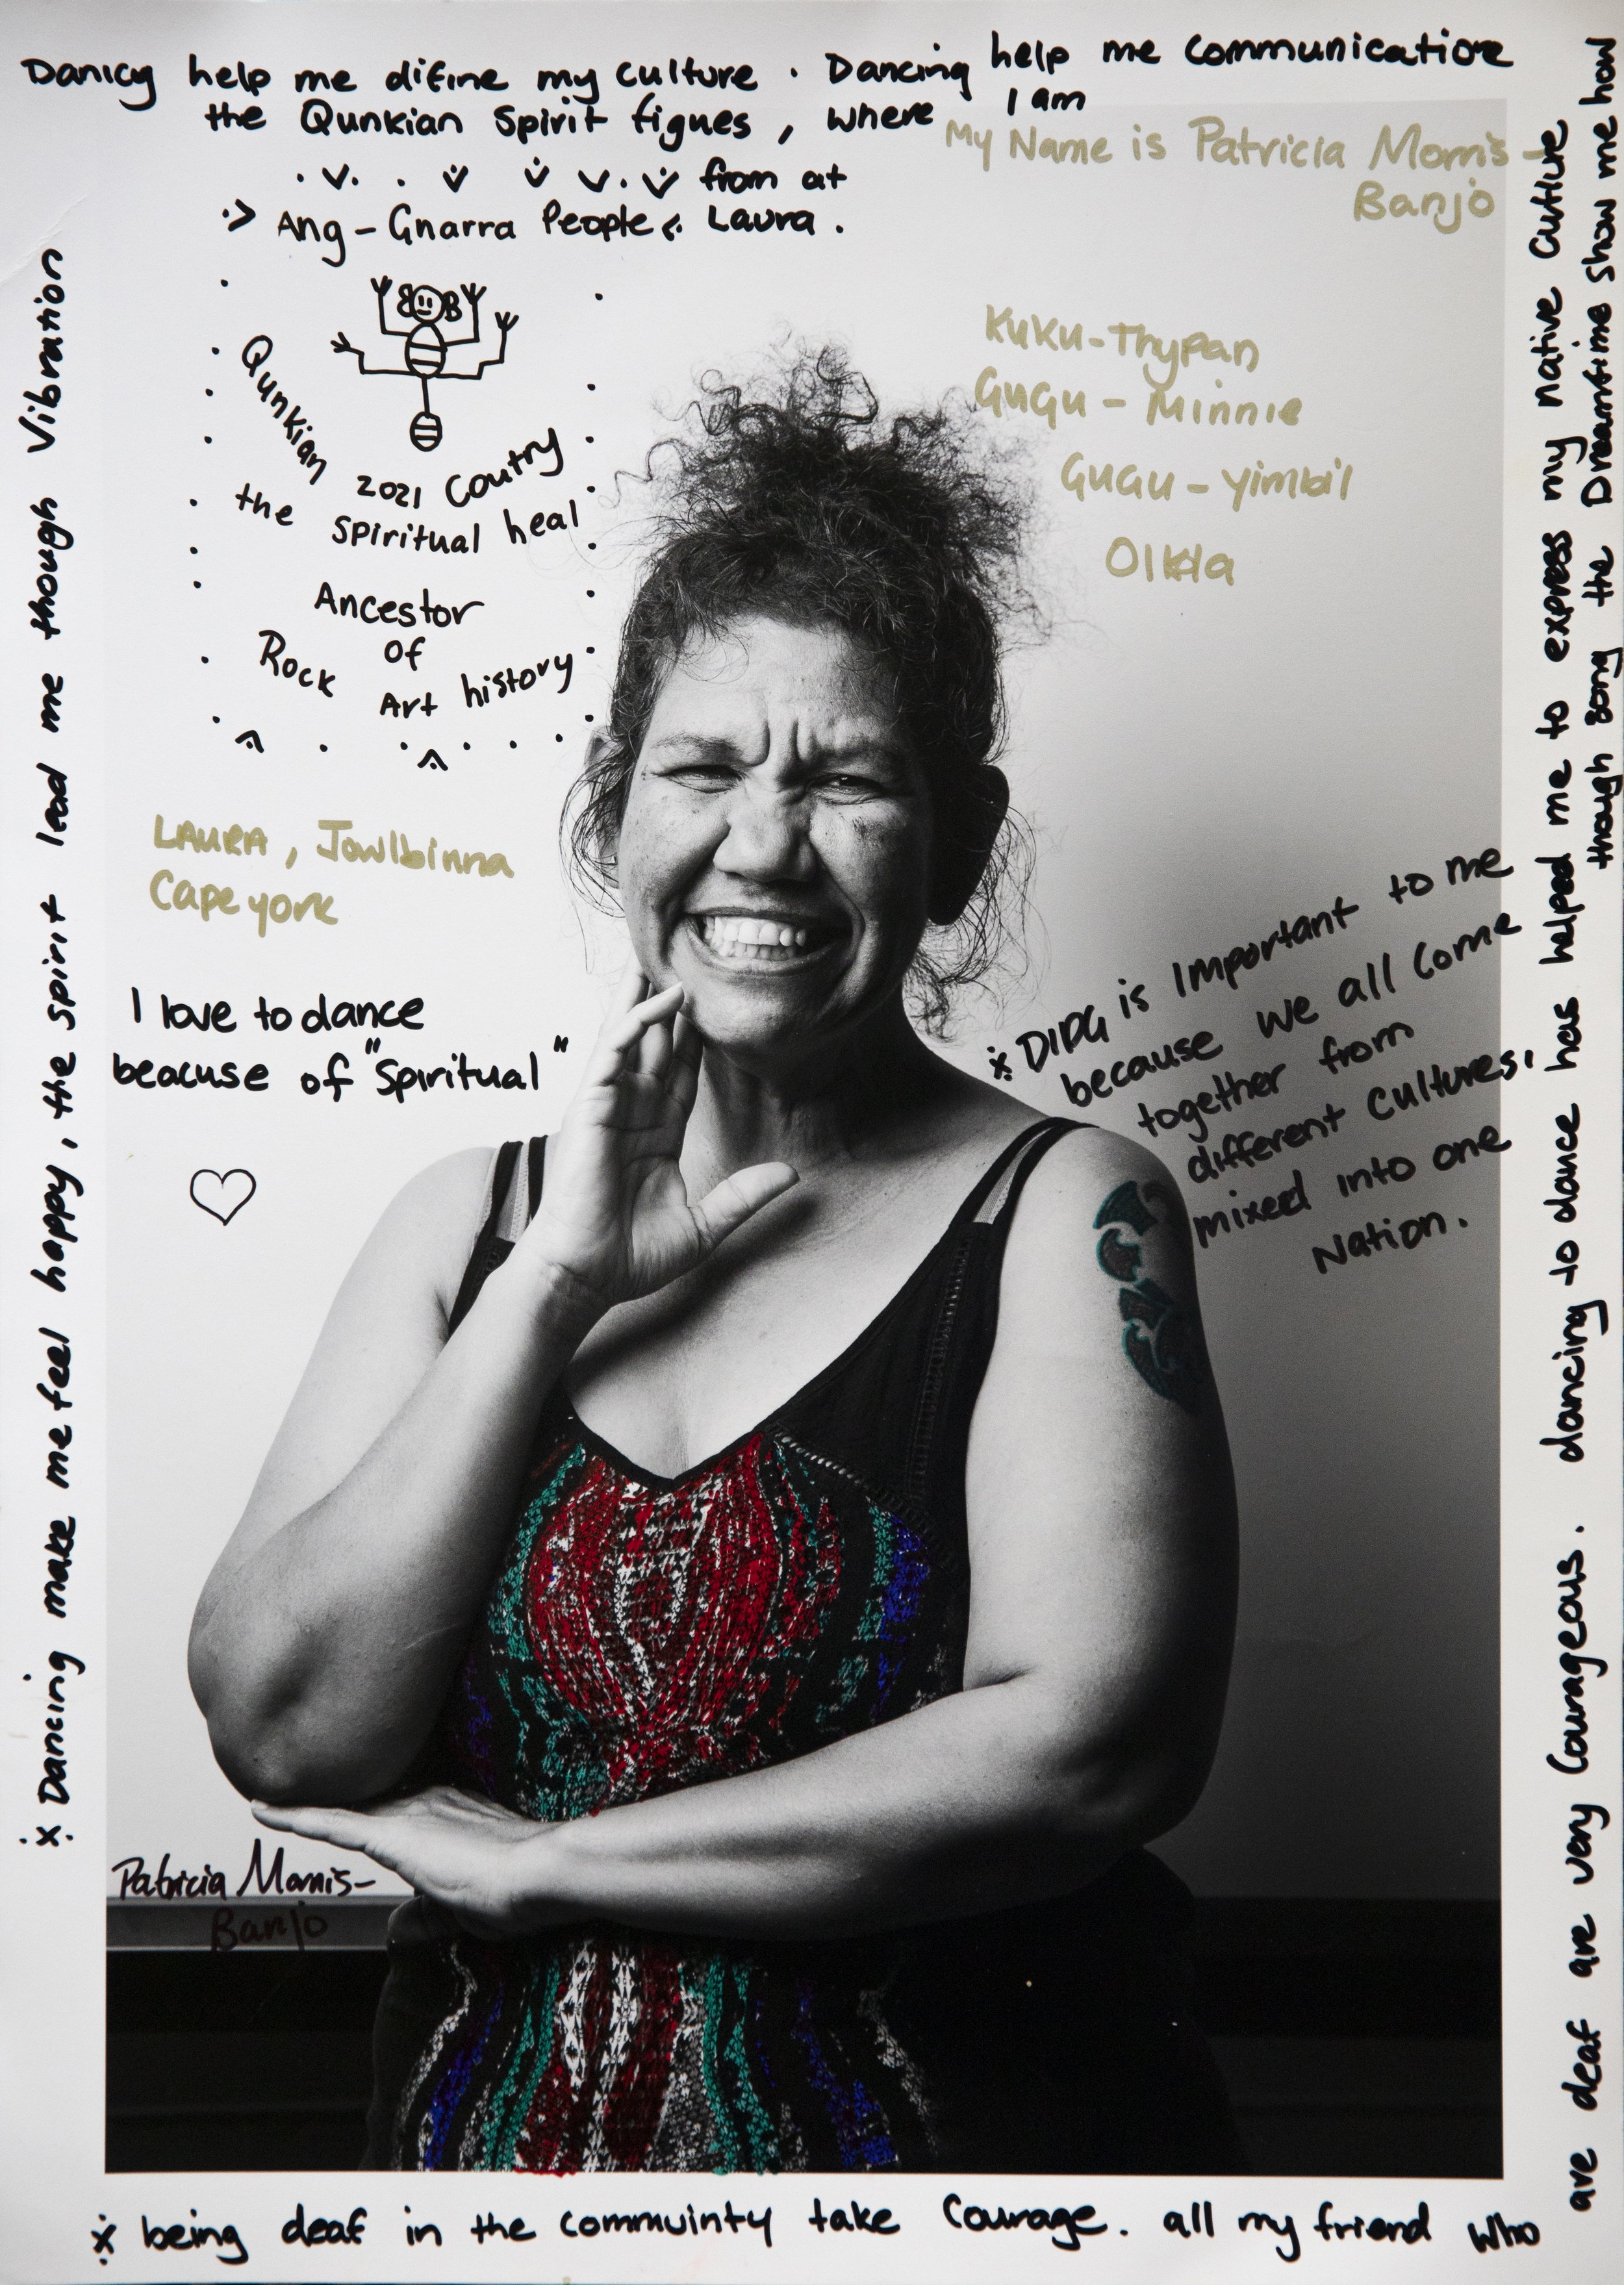 Danicy help me difine my culture. Dancing help me communication
the Qunkian Spirit figues, where I am
from at
Ang-Gnarra People Laura.
My Name is Patricia Morris-
Banjo
KUKU-Thypan
GUGU-Minnie
GUGU-yimbil
Olkla
B B
Qunkian 2021 Coutry
the spiritual heal
Ancestor
of
Rock Art history
LAURA, Jowlbinna
Cape york
I love to dance
beacuse of "Spiritual"
DIDG is Important to me
because we all come
together from
different cultures,
mixed into one
Nation.
Dancing make me feel happy, the spirit lead me though Vibration
Patricia Morris-
Banjo
being deaf in the commuinty take Courage. all my friend who
are deaf are very Courageous. dancing to dance has helped me to express my native culture
though song the Dreamtime show me how